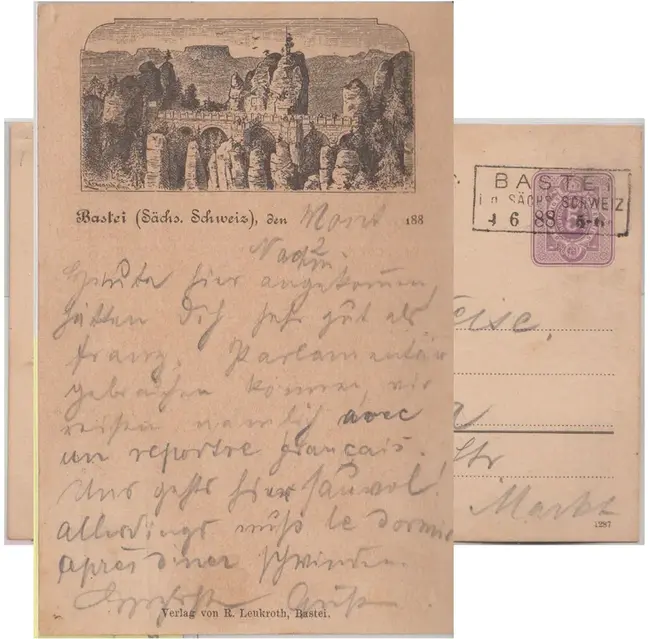 Bastei (Sächs. Schweiz), den Mont 188
Nachm.
hier angekommen,
hätten Dich sehr gut als
franz. Parlamentär
gebrauchen können, wir
reisen nämlich avec
un reportre français.
Uns gehts hier sauwol!
Allerdings muß le dormir
après diner schwinden.
Grüße
Verlag von R. Leukroth, Bastei.
BASTEI
i.d. SÄCHS. SCHWEIZ
4 6 88 5-6
Str
Markt
1287